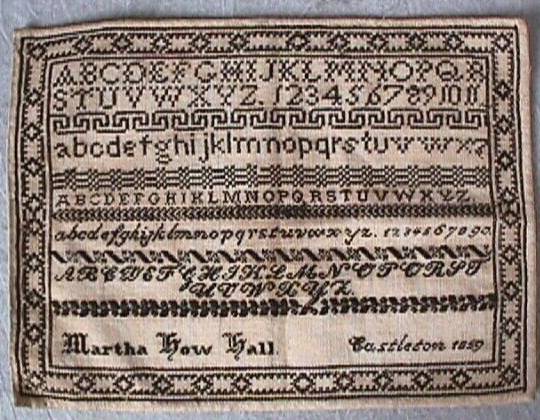 ABCDEFGHIJKLMNOPQR
STUVWXYZ. 1234567891011
abcdefghijklmnopqrstuvwxz
ABCDEFGHIKLMNOPQRSTUVWXYZ
abcdefghijklmnopqrstuvwxyz. 1234567890.
ABCDEFGHIKLMNOPQRST
UVWXYZ.
Martha How Hall. Castleton 1859